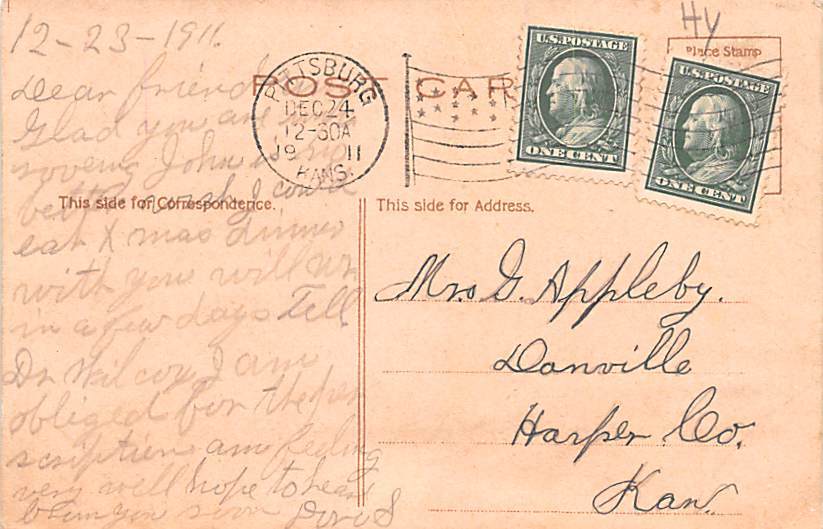 12-23-1911.
Dear friend
Glad you are
John is
better I could
eat Xmas dinner
with you will
in a few days Tell
Dr Wilcox I am
obliged for the per
scription am feeling
very well hope to hear
from you soon
HY
Place Stamp
POST CAR
PITTSBURG
DEC 24
12-30A
19 11
KANS.
U.S. POSTAGE
ONE CENT
U.S. POSTAGE
ONE CENT
This side for Correspondence.
This side for Address.
Mrs G. Appleby.
Danville
Harper Co.
Kan.